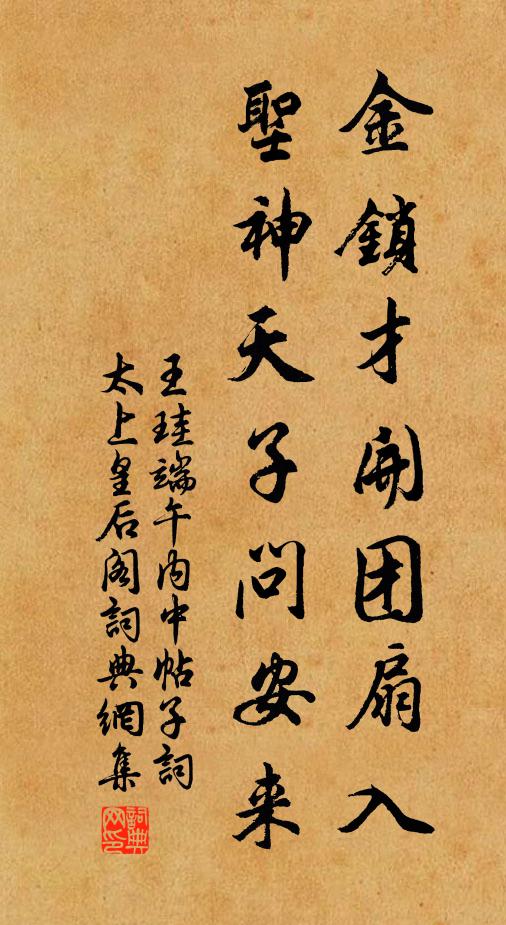 金鎖才開团扇入
聖神天子問安来
王珪端午内中帖子詞
太上皇后阁詞典網集
詞典网印